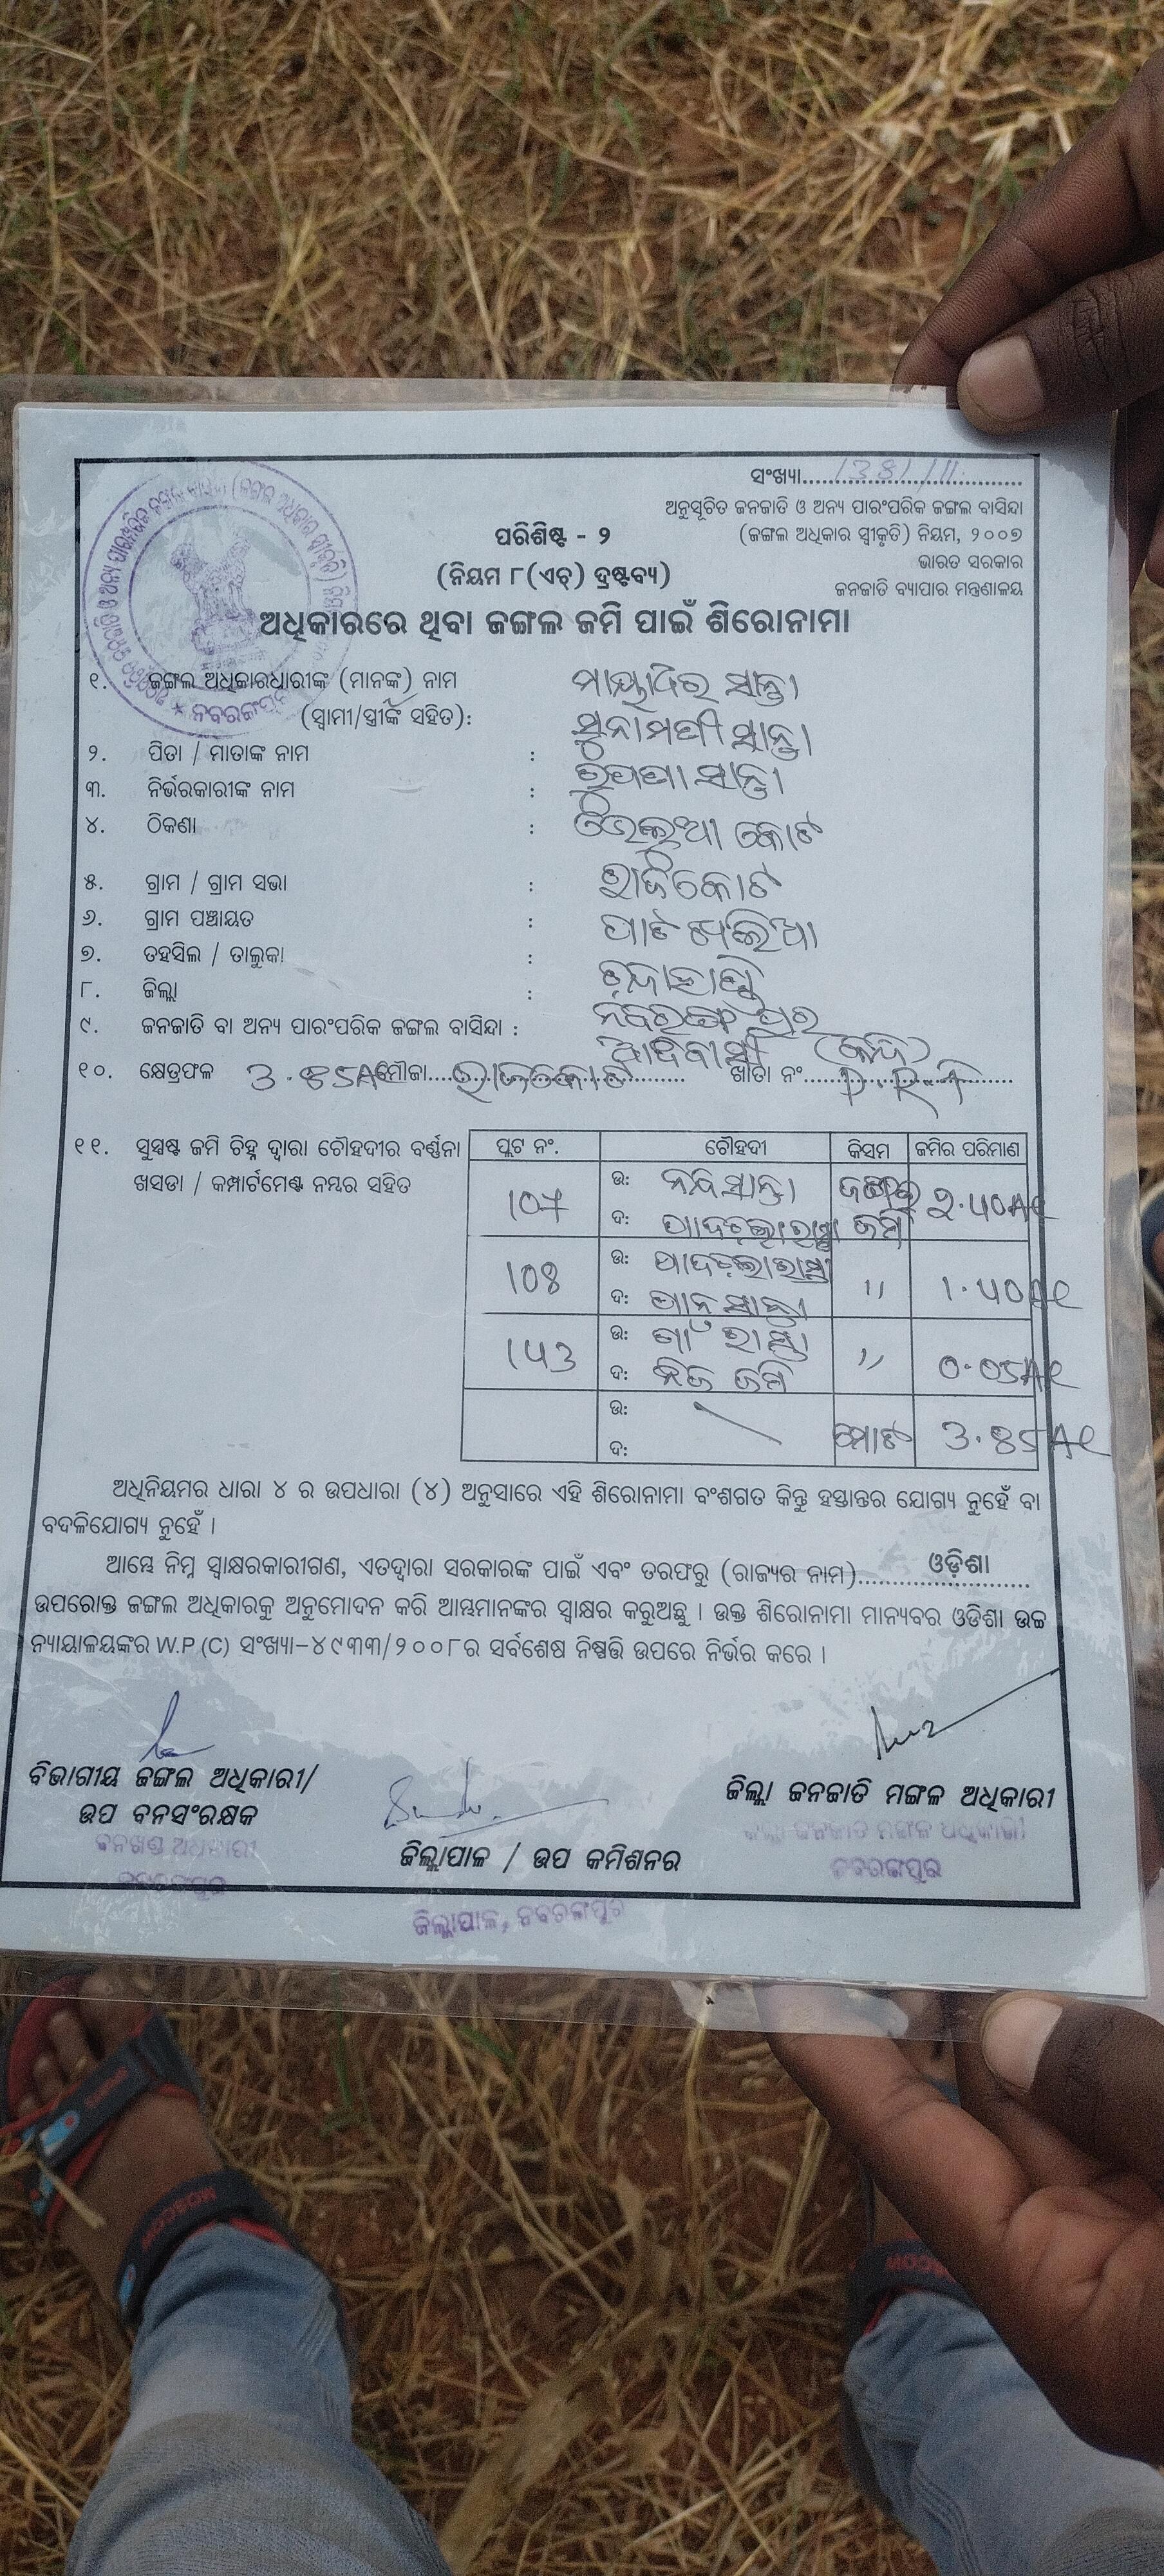 ସଂଖ୍ୟା............................
ଅନୁସୂଚିତ ଜନଜାତି ଓ ଅନ୍ୟ ପାରଂପରିକ ଜଙ୍ଗଲ ବାସିନ୍ଦା
(ଜଙ୍ଗଲ ଅଧିକାର ସ୍ୱୀକୃତି) ନିୟମ, ୨୦୦୭
ଭାରତ ସରକାର
ଜନଜାତି ବ୍ୟାପାର ମନ୍ତ୍ରଣାଳୟ
ପରିଶିଷ୍ଟ - ୨
(ନିୟମ ୮(ଏଚ୍) ଦ୍ରଷ୍ଟବ୍ୟ)
ଅଧିକାରରେ ଥିବା ଜଙ୍ଗଲ ଜମି ପାଇଁ ଶିରୋନାମା
୧. ଜଙ୍ଗଲ ଅଧିକାରଧାରୀଙ୍କ (ମାନଙ୍କ) ନାମ ସାନ୍ତା
(ସ୍ୱାମୀ/ସ୍ତ୍ରୀଙ୍କ ସହିତ): ସୁନାମଣୀ ସାନ୍ତା
୨. ପିତା / ମାତାଙ୍କ ନାମ : ସାନ୍ତା
୩. ନିର୍ଭରକାରୀଙ୍କ ନାମ :
୪. ଠିକଣା :
୫. ଗ୍ରାମ / ଗ୍ରାମ ସଭା : ରାଜକୋଟ
୬. ଗ୍ରାମ ପଞ୍ଚାୟତ :
୭. ତହସିଲ / ତାଲୁକା :
୮. ଜିଲ୍ଲା : ନବରଙ୍ଗପୁର
୯. ଜନଜାତି ବା ଅନ୍ୟ ପାରଂପରିକ ଜଙ୍ଗଲ ବାସିନ୍ଦା : ଆଦିବାସୀ
୧୦. କ୍ଷେତ୍ରଫଳ 3.85Ac ମୌଜା.... ରାଜକୋଟ ଖାତା ନଂ....
୧୧. ସୁସ୍ପଷ୍ଟ ଜମି ଚିହ୍ନ ଦ୍ୱାରା ଚୌହଦୀର ବର୍ଣ୍ଣନା
ଖସଡା / କମ୍ପାର୍ଟମେଣ୍ଟ ନମ୍ବର ସହିତ
ପ୍ଲଟ ନଂ. ଚୌହଦୀ କିସମ ଜମିର ପରିମାଣ
ଉ: ସାନ୍ତା ଜଙ୍ଗଲ ୨.୪0Ac
ଦ: ପାଦଚଲା ରାସ୍ତା ଜମି
108 ଉ: ପାଦଚଲା ରାସ୍ତା ,, ୧.୪0Ac
ଦ: ସାନ୍ତା
ଉ: ଗାଁ ରାସ୍ତା ,, 0.05Ac
ଦ: ନିଜ ଜମି
ଉ: ମୋଟ 3.85Ac
ଦ:
ଅଧିନିୟମର ଧାରା ୪ ର ଉପଧାରା (୪) ଅନୁସାରେ ଏହି ଶିରୋନାମା ବଂଶଗତ କିନ୍ତୁ ହସ୍ତାନ୍ତର ଯୋଗ୍ୟ ନୁହେଁ ବା
ବଦଳିଯୋଗ୍ୟ ନୁହେଁ ।
ଆମ୍ଭେ ନିମ୍ନ ସ୍ୱାକ୍ଷରକାରୀଗଣ, ଏତଦ୍ୱାରା ସରକାରଙ୍କ ପାଇଁ ଏବଂ ତରଫରୁ (ରାଜ୍ୟର ନାମ)....... ଓଡ଼ିଶା .......
ଉପରୋକ୍ତ ଜଙ୍ଗଲ ଅଧିକାରକୁ ଅନୁମୋଦନ କରି ଆମ୍ଭମାନଙ୍କର ସ୍ୱାକ୍ଷର କରୁଅଛୁ । ଉକ୍ତ ଶିରୋନାମା ମାନ୍ୟବର ଓଡିଶା ଉଚ୍ଚ
ନ୍ୟାୟାଳୟଙ୍କର W.P.(C) ସଂଖ୍ୟା-୪୯୩୩/୨୦୦୮ର ସର୍ବଶେଷ ନିଷ୍ପତ୍ତି ଉପରେ ନିର୍ଭର କରେ ।
ବିଭାଗୀୟ ଜଙ୍ଗଲ ଅଧିକାରୀ/
ଉପ ବନସଂରକ୍ଷକ
ବନଖଣ୍ଡ ଅଧିକାରୀ
ନବରଙ୍ଗପୁର
ଜିଲ୍ଲାପାଳ / ଉପ କମିଶନର
ଜିଲ୍ଲାପାଳ, ନବରଙ୍ଗପୁର
ଜିଲ୍ଲା ଜନଜାତି ମଙ୍ଗଳ ଅଧିକାରୀ
ଜିଲ୍ଲା ଜନଜାତି ମଙ୍ଗଳ ଅଧିକାରୀ
ନବରଙ୍ଗପୁର